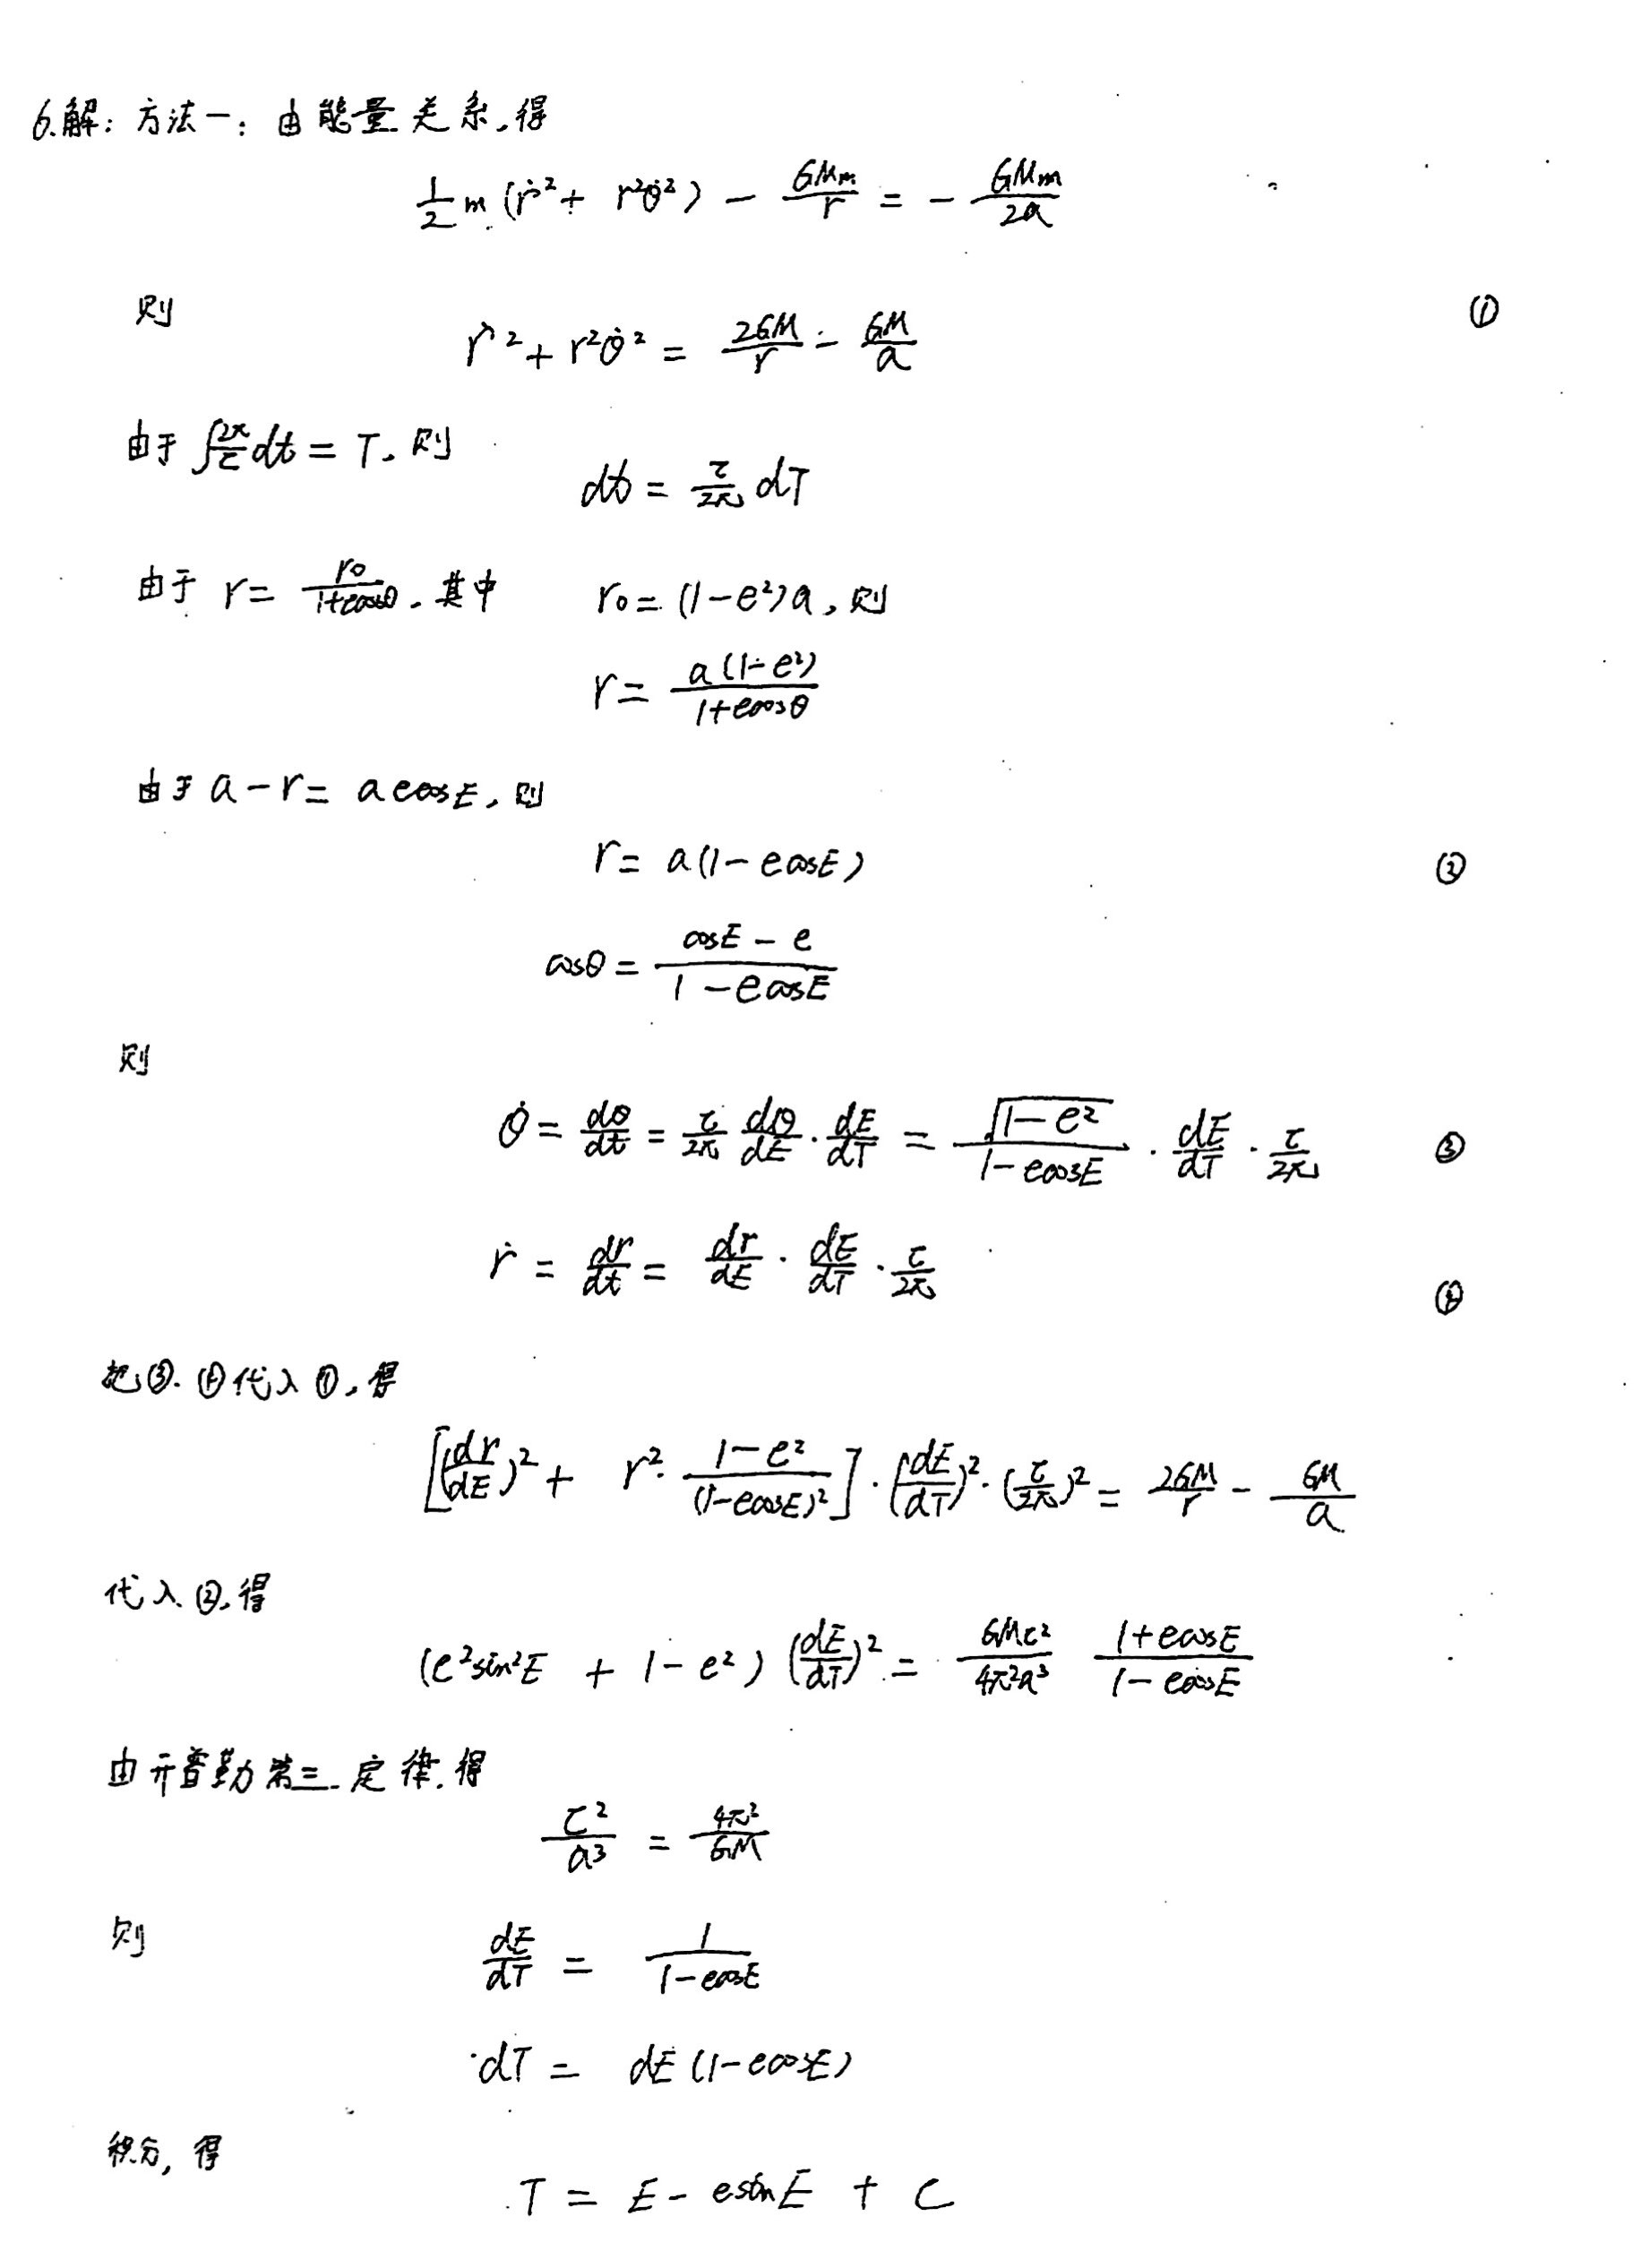 6.解: 方法一: 由能量关系,得
1/2 m (ṙ² + r²θ̇²) - GMm/r = - GMm/2a
则 ①
ṙ² + r²θ̇² = 2GM/r - GM/a
由于 ∫2π/τ dt = T, 则
dt = τ/2π dT
由于 r = r₀/(1+ecosθ), 其中 r₀ = (1-e²)a, 则
r = a(1-e²)/(1+ecosθ)
由于 a-r = aecosE, 则
r = a(1-ecosE) ②
cosθ = (cosE - e)/(1 - ecosE)
则
θ̇ = dθ/dt = τ/2π dθ/dE · dE/dT = √(1-e²)/(1-ecosE) · dE/dT · τ/2π ③
ṙ = dr/dt = dr/dE · dE/dT · τ/2π
④
把③.④代入①,得
[(dr/dE)² + r² · (1-e²)/(1-ecosE)²] · (dE/dT)² · (τ/2π)² = 2GM/r - GM/a
代入②,得
(e²sin²E + 1-e²) (dE/dT)² = GMτ²/4π²a³ (1+ecosE)/(1-ecosE)
由开普勒第三定律.得
τ²/a³ = 4π²/GM
则
dE/dT = 1/(1-ecosE)
dT = dE(1-ecosE)
积分,得
T = E - esinE + C